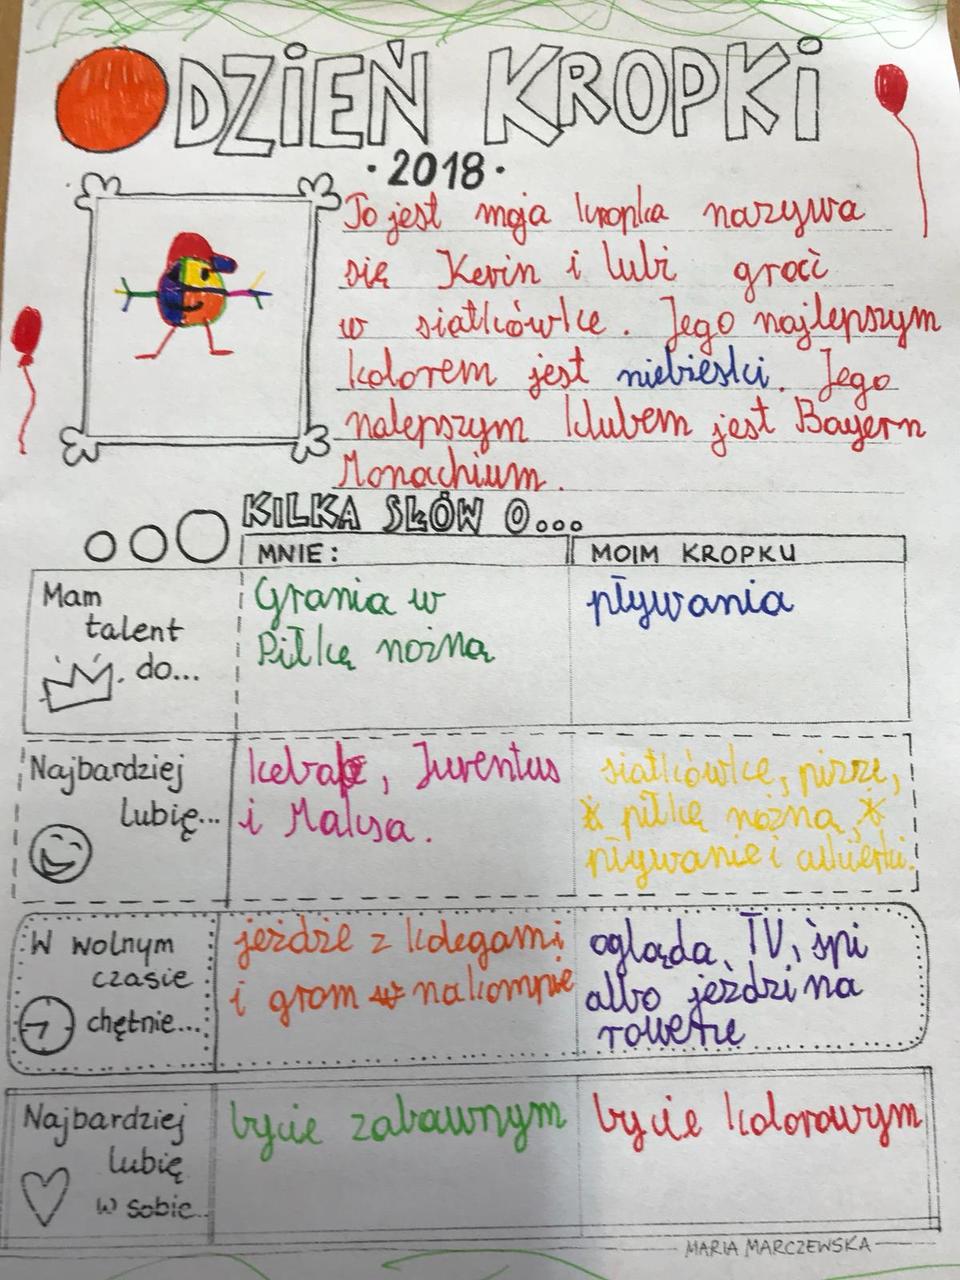 DZIEŃ KROPKI
• 2018 •
To jest moja kropka nazywa
się Kevin i lubi grać
w siatkówke. Jego najlepszym
kolorem jest niebieski. Jego
nalepszym klubem jest Bayern
Monachium.
KILKA SŁÓW O...
MNIE:
MOIM KROPKU
Mam
talent
do...
Grania w
Piłkę nożna
pływania
Najbardziej
lubię...
kebab, Juventus
i Maksa.
siatkówkę, pizzę,
piłkę nozna,
pływanie i cukierki.
W wolnym
czasie
chętnie...
jeżdże z kolegami
i gram na kompie
ogląda TV, śpi
albo jeździ na
rowerze
Najbardziej
lubię
w sobie...
bycie zabawnym
bycie kolorowym
MARIA MARCZEWSKA